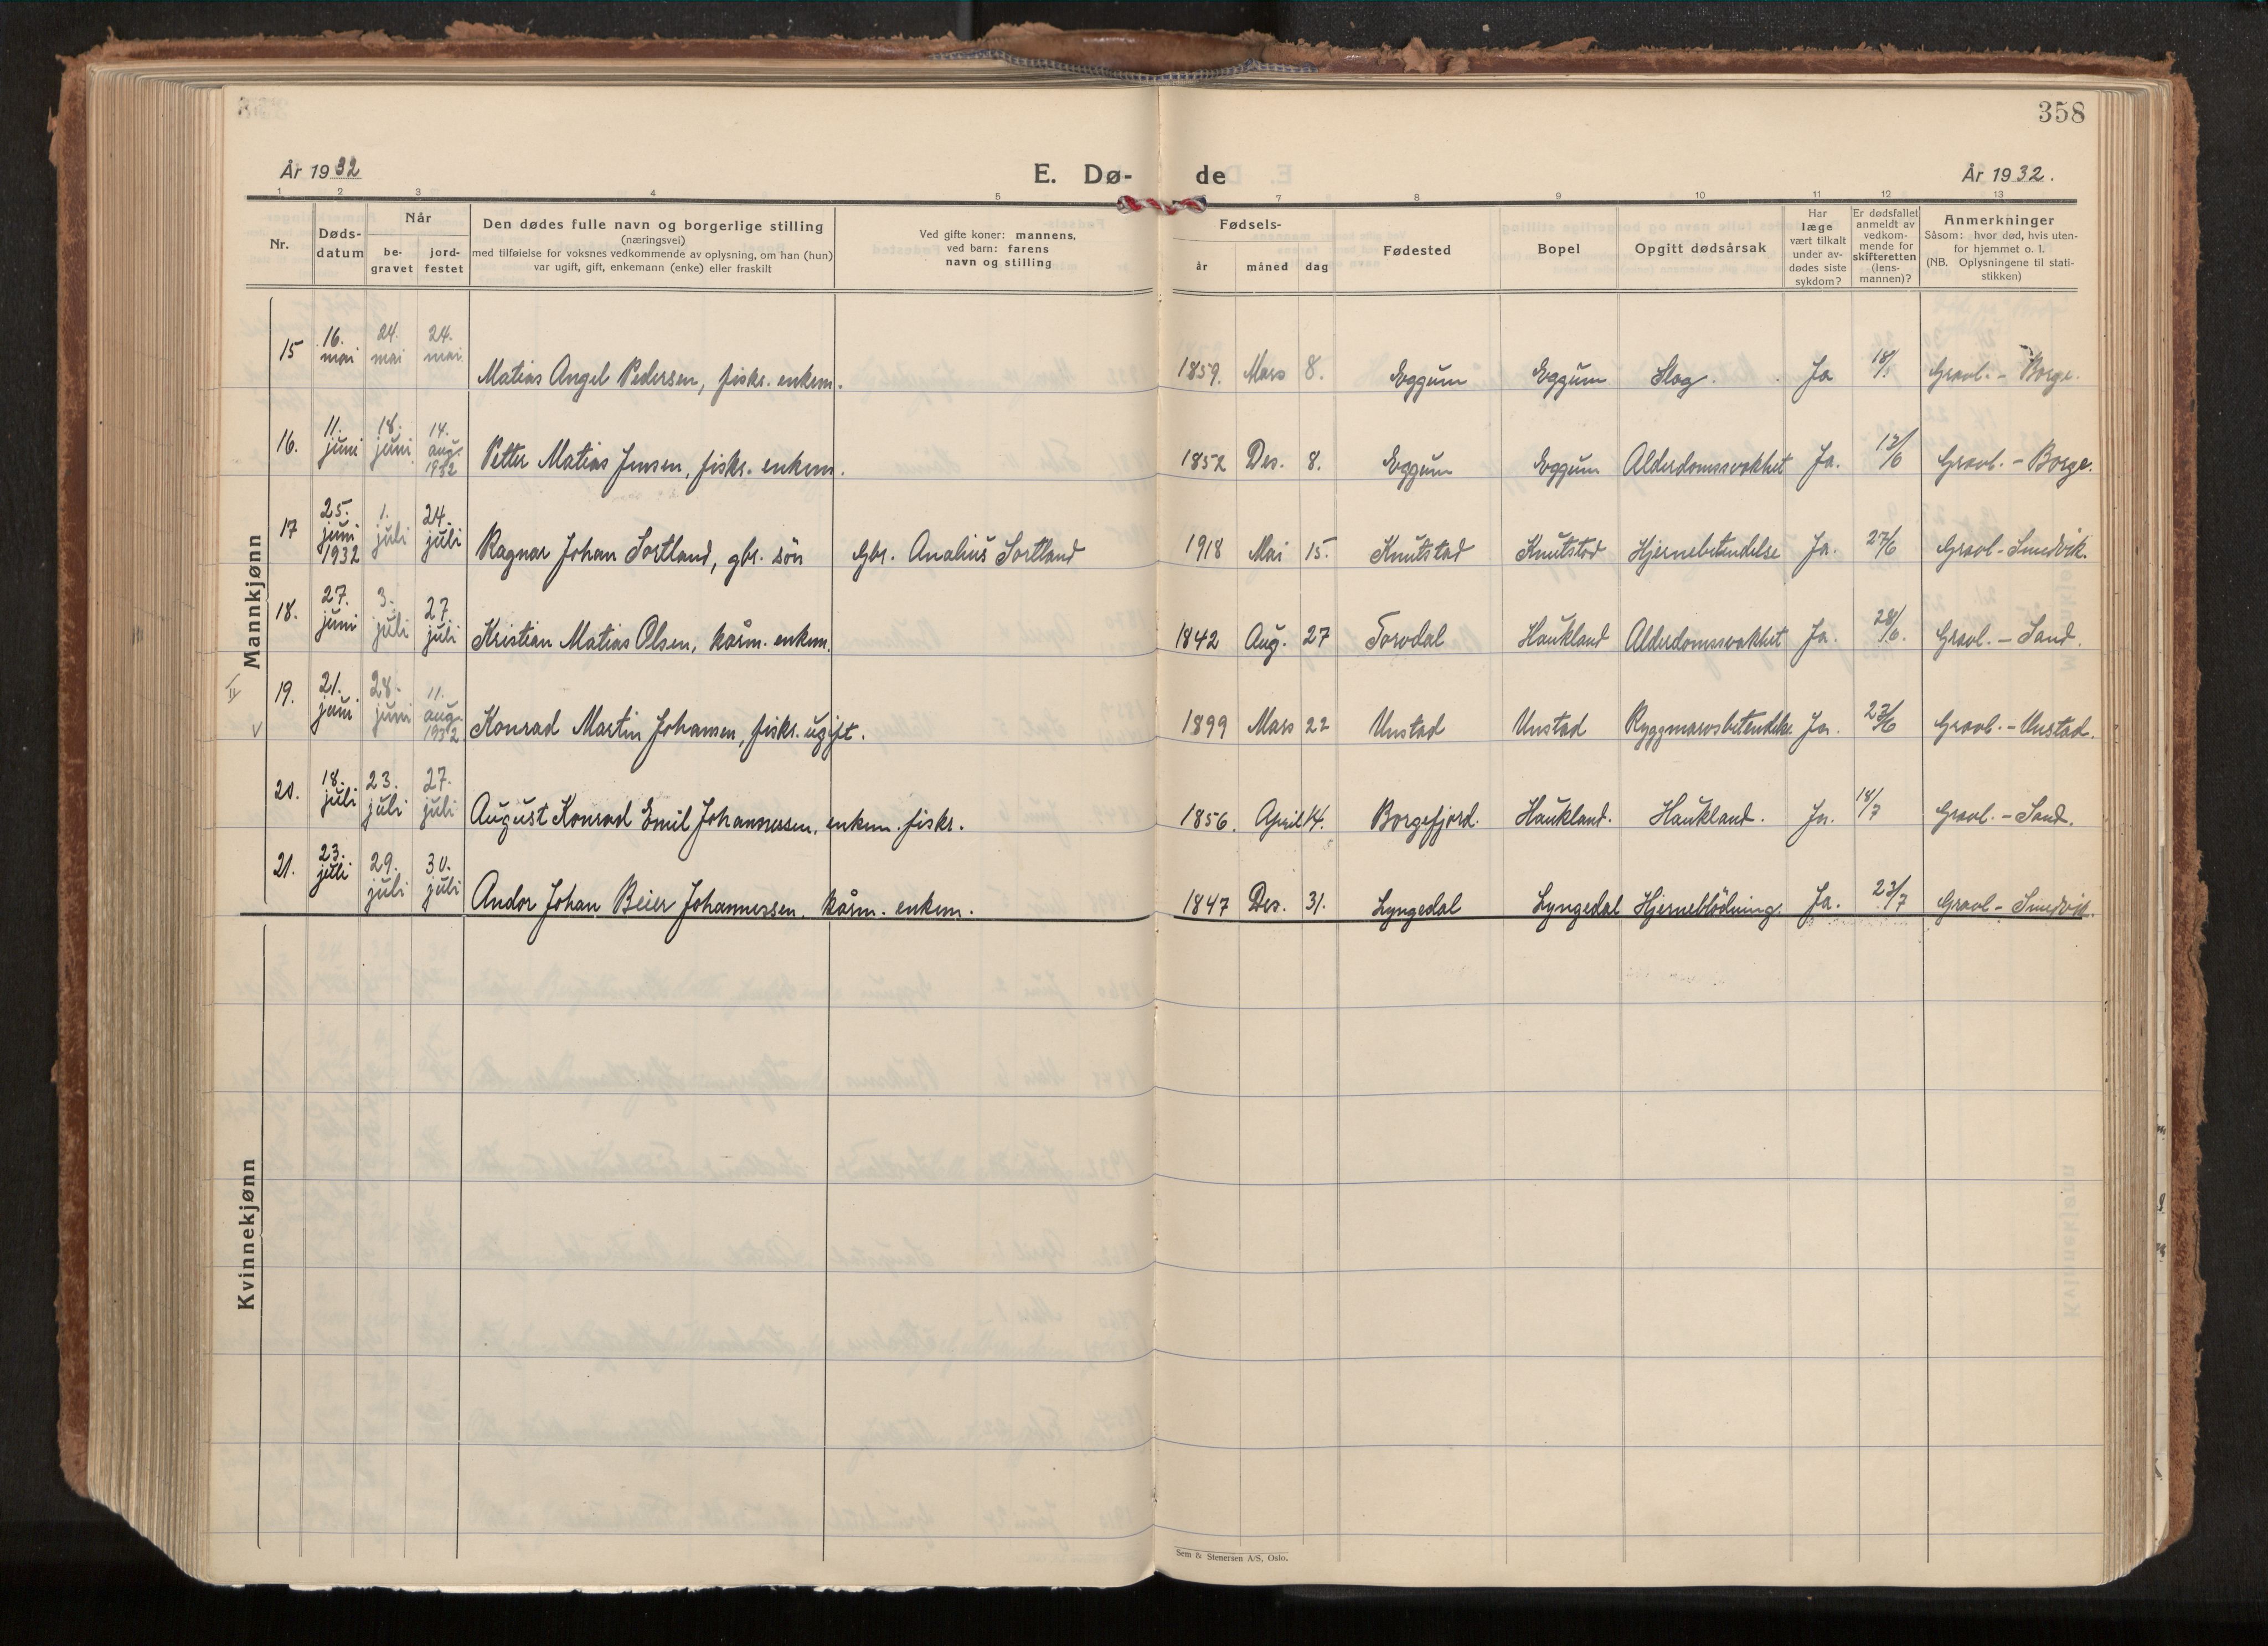 358
År 1932
E. Dø-de
År 1932.
1 2 3 4 5 7 8 9 10 11 12 13
Nr.
Døds-datum
Når
be-gravet
jord-festet
Den dødes fulle navn og borgerlige stilling
(næringsvei)
med tilføielse for voksnes vedkommende av oplysning, om han (hun)
var ugift, gift, enkemann (enke) eller fraskilt
Ved gifte koner: mannens,
ved barn: farens
navn og stilling
Fødsels-
år måned dag
Fødested
Bopel
Opgitt dødsårsak
Har
læge
vært tilkalt
under av-
dødes siste
sykdom?
Er dødsfallet
anmeldt av
vedkom-
mende for
skifteretten
(lens-
mannen)?
Anmerkninger
Såsom: hvor død, hvis uten-
for hjemmet o. l.
(NB. Oplysningene til stati-
stikken)
Mannkjønn
15 16. mai 24. mai 24. mai Matias Angel Pedersen, fiskr. enkem. 1859. Mars 8. Eggum Eggum Slag. Ja Gravl. - Borge.
16. 11. juni 18. juni 14. aug. 1932 Petter Matias Jensen, fiskr. enkem. 1852 Des. 8. Eggum Eggum Alderdomssvakhet Ja. 12/6 Gravl. - Borge.
17 25. juni 1932 1. juli 24. juli Ragnar Johan Sortland, gbr. sön Gbr. Analius Sortland 1918 Mai 15. Knutstad Knutstad Hjernebetendelse Ja. 27/6 Gravl - Smedvik.
18. 27. juni 3. juli 27. juli Kristian Matias Olsen, kårm. enkem. 1842 Aug. 27 Torvdal Haukland Alderdomssvakhet Ja. 28/6. Gravl. - Sand.
19. 21. juni 28. juni 11. aug. 1932 Konrad Martin Johansen, fiskr. ugift. 1899 Mars 22 Unstad Unstad Ryggmarvsbetendelse Ja. 23/6 Gravl. - Unstad.
20. 18. juli 23. juli 27. juli August Konrad Emil Johannessen. enkem. fiskr. 1856. April 14. Borgefjord. Haukland. Haukland. Ja. 18/7 Gravl. - Sand.
21. 23. juli 29. juli 30. juli Andor Johan Beier Johannessen. kårm. enkem. 1847 Des. 31. Lyngedal Lyngedal Hjerneblödning. Ja. 23/7 Gravl - Smedvik.
Kvinnekjønn
Sem & Stenersen A/S, Oslo.